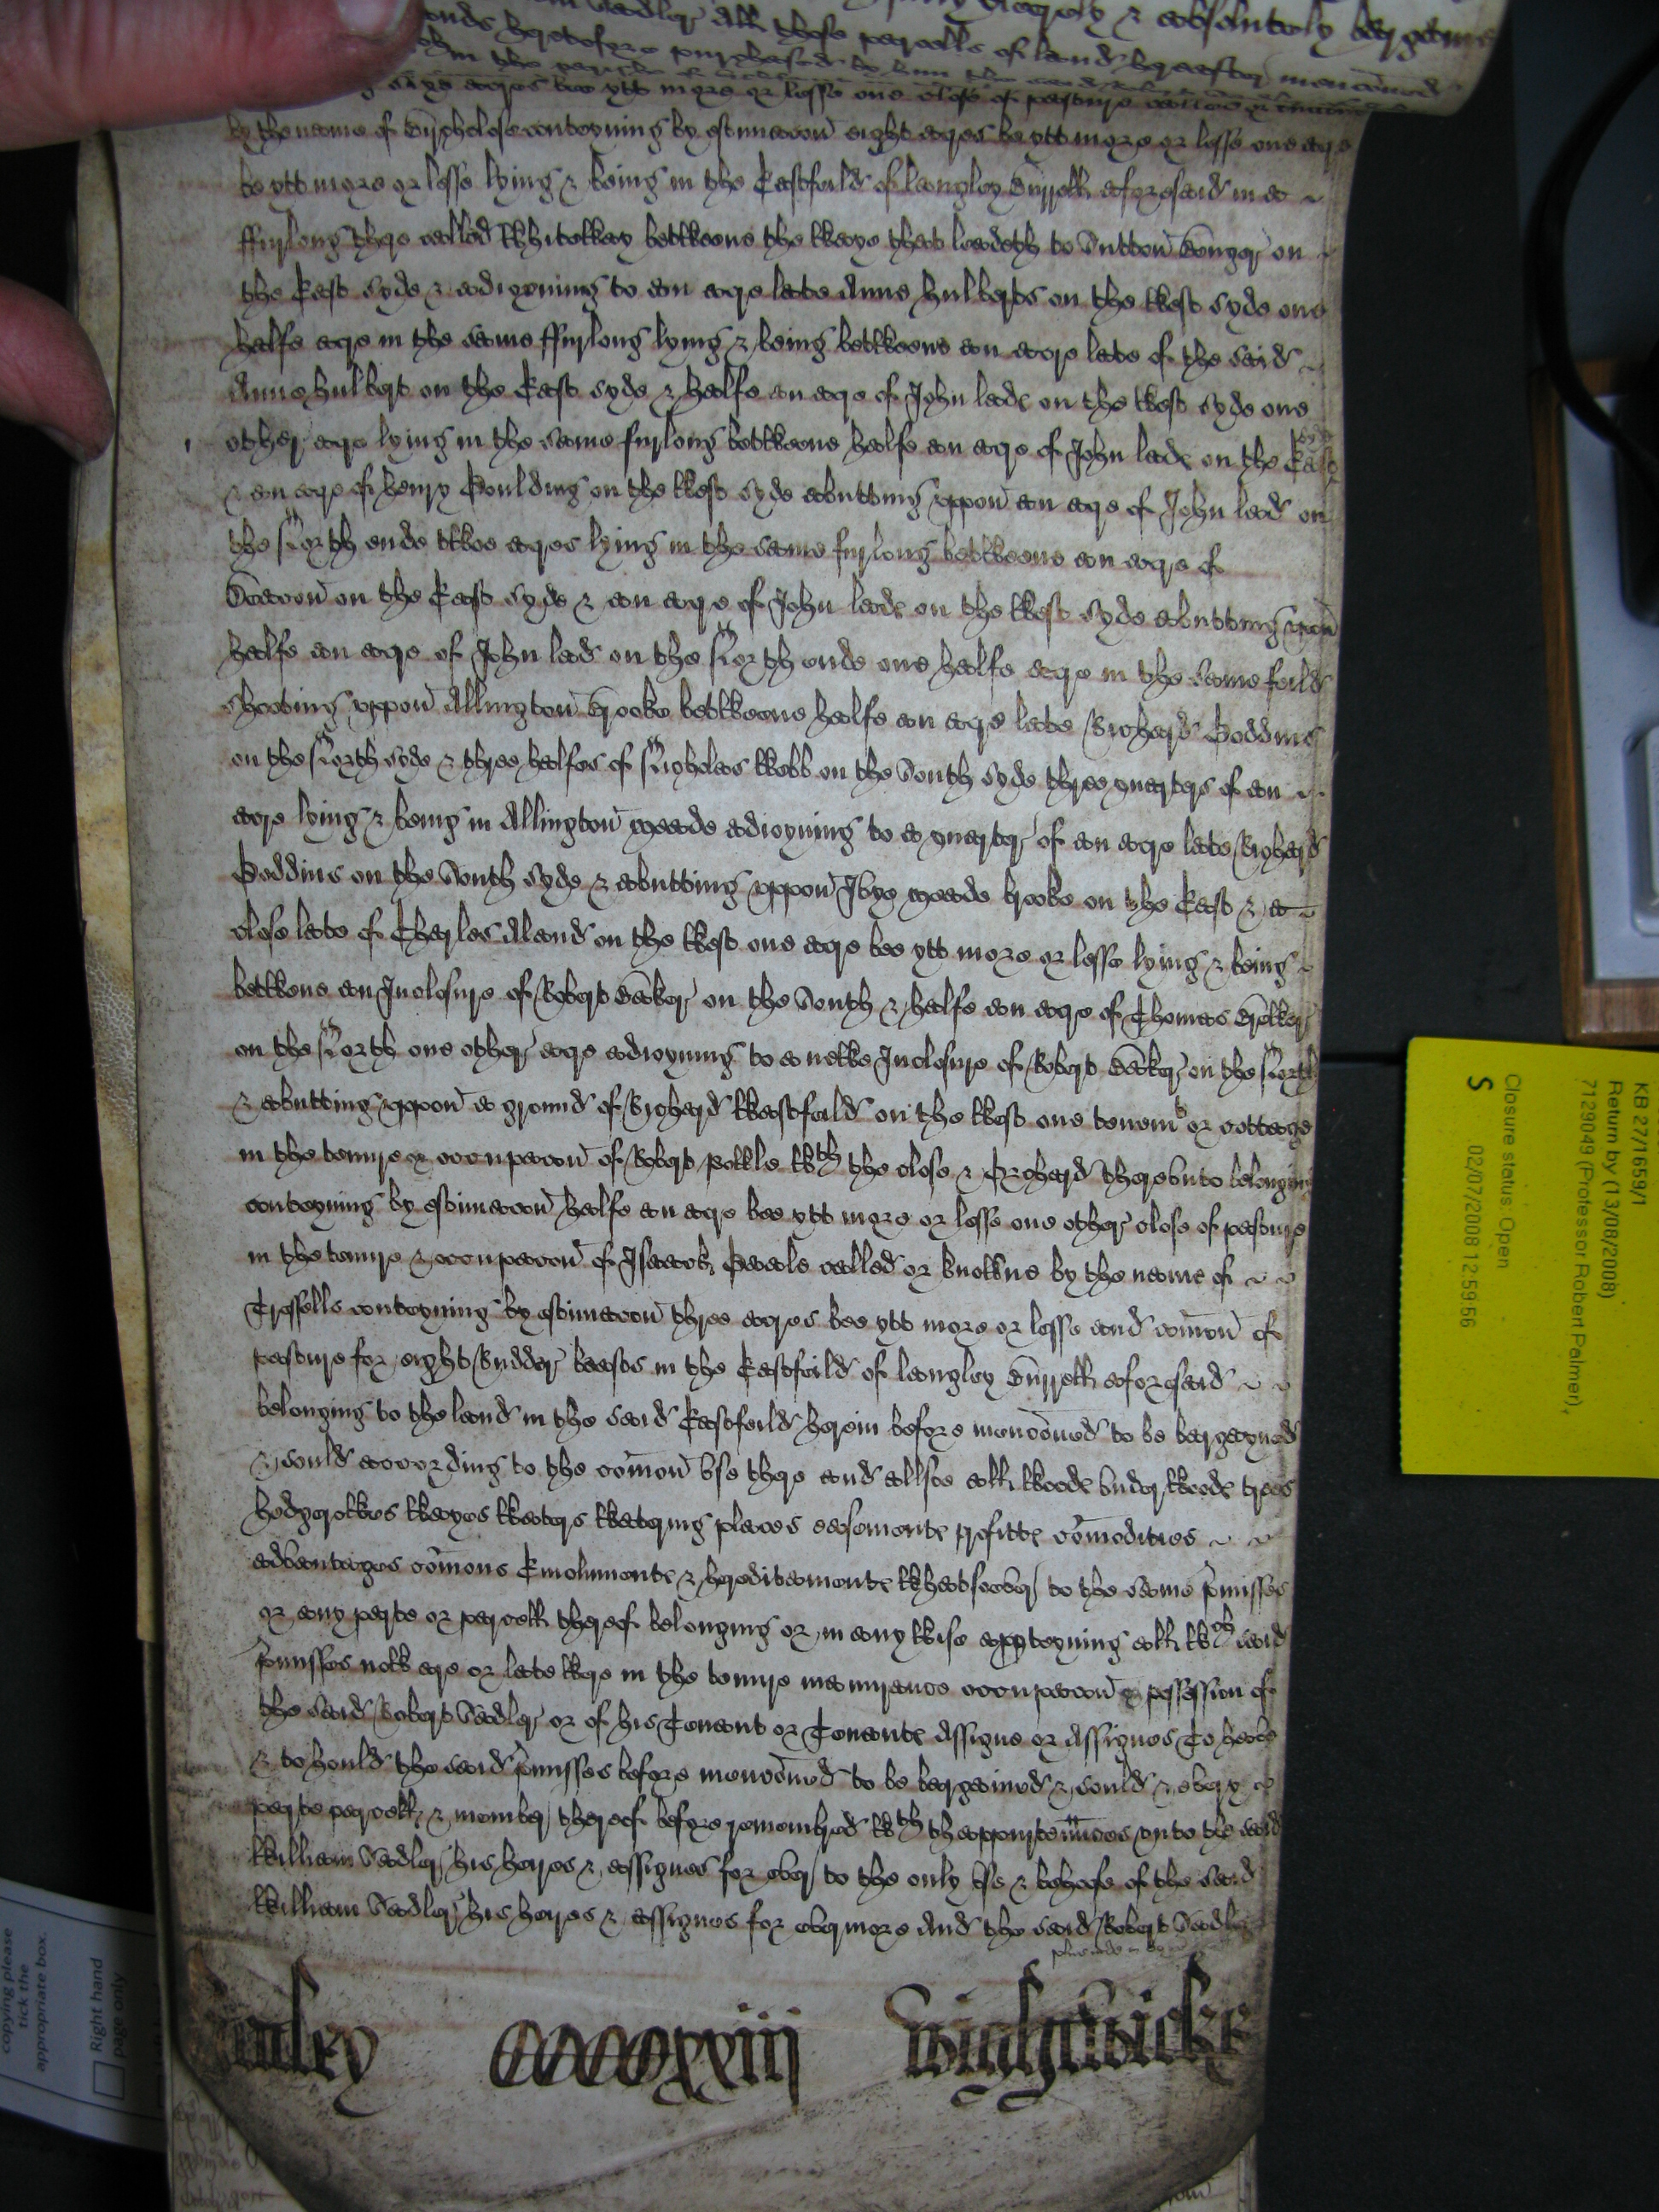 Sadler All those parcells of land hereafter mencioned
by the name of Byrchclose conteyning by estimacon eight acres be ytt more or lesse one acre
be ytt more or lesse lying & being in the Eastfeild of Langley Burrell aforesaid in a
ffurlong there called Whiteway betweene the waye that leadeth to Sutton Benger on
the East syde & adioyning to an acre late Anne Hulberts on the West syde one
halfe acre in the same ffurlong lying & being betweene an acre late of the said
Anne Hulbert on the East syde & halfe an acre of John lade on the West syde one
other acre lying in the same furlong betweene halfe an acre of John lade on the East syde
& an acre of Henry Goulding on the West syde abutting uppon an acre of John lade on
the North ende twoe acres lying in the same furlong betweene an acre of
Bacon on the East syde & an acre of John lade on the West syde abutting upon
halfe an acre of John lade on the North ende one halfe acre in the same feild
shooting uppon Allington Hooke betweene halfe an acre late Richard Boddins
on the North syde & three halfes of Nicholas Webb on the South syde three quarters of an
acre lying & being in Allington meade adioyning to a quarter of an acre late Richard
Boddins on the South syde & abutting uppon Ivye meade hooke on the East & a
close late of Charles Aland on the West one acre bee ytt more or lesse lying & being
betwene an Inclosure of Robert Baker on the South & halfe an acre of Thomas
on the North one other acre adioyning to a newe Inclosure of Robert Baker on the North
& abutting uppon a ground of Richard Wastfeild on the West one tenemt or cottage
in the tenure or occupacon of Robert Powle wth the close & Orchard therevnto belonging
conteyning by estimacon halfe an acre bee ytt more or lesse one other close of pasture
in the tenure & occupacon of Isaack called or knowne by the name of
Tressells conteyning by estimacon three acres bee ytt more or lesse and comon of
pasture for eight Rudder beasts in the Eastfeild of langley Burrell aforesaid
belonging to the land in the said Eastfeild herein before mencioned to be bargayned
& sould according to the comon vse there and allsoe all woodes vnderwoodes trees
hedgerowes wayes waters watering places easementes profittes comodities
advantages comons Emolumentes & hereditamentes whatsoever to the same pmisses
or any parte or parcell thereof belonging or in any wise apperteyning all wch said
pmisses now are or late were in the tenure manurance occupacon or possession of
the said Robert Sadler or of his Tenant or Tenantes Assigne or Assignes To have
& to hould the said pmisses before mencioned to be bargained & sould & every
parte parcell & member thereof before remembred wth thappurtenances unto the said
William Sadler his heyres & assignes for ever to the only Vse & behoofe of the said
William Sadler his heyres & assignes for evermore And the said Robert Sadler
CCCCCxxiij
Wightwicke
KB 27/1659/1
Return by (13/08/2008)
7129049 (Professor Robert Palmer),
Closure status: Open
S 02/07/2008 12:59:56
copying please
tick the
appropriate box.
Right hand
page only